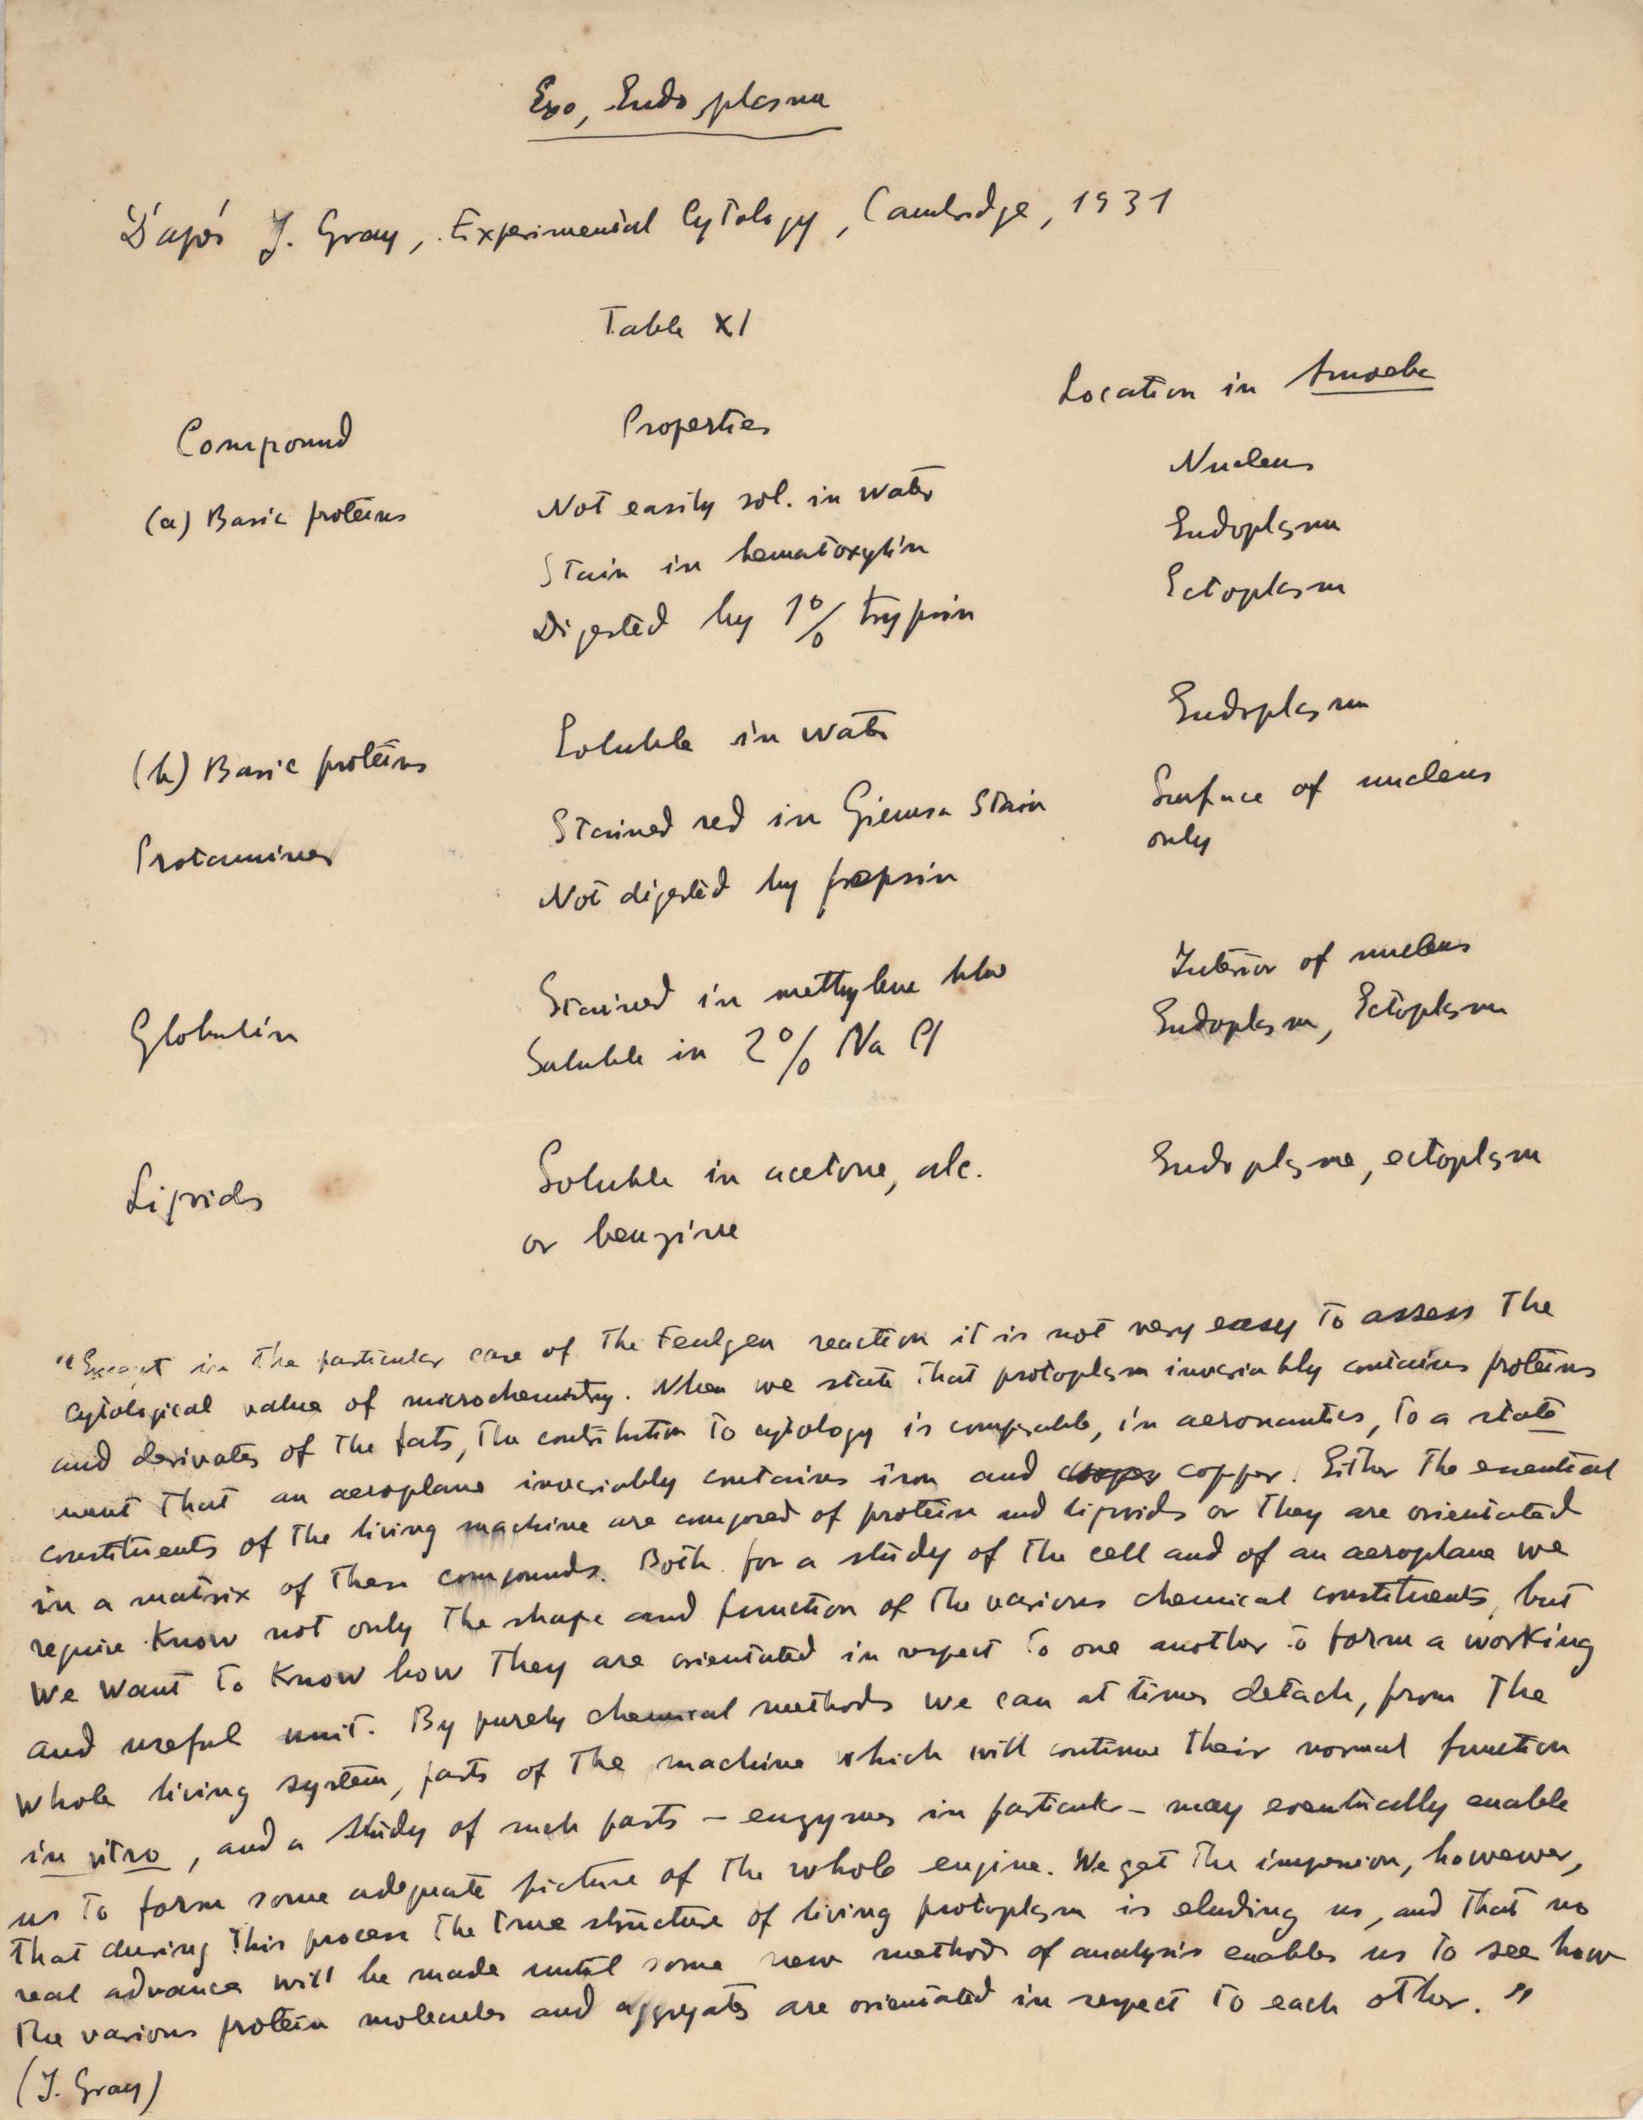 Exo, Endo, plasma
D'après J. Gray, Experimental Cytology, Cambridge, 1931
Table XI
Compound Properties Location in Amoeba
(a) Basic proteins Not easily sol. in water Nucleus
Stain in hematoxylin Endoplasm
Digested by 1% trypsin Ectoplasm
(b) Basic proteins Soluble in water Endoplasm
Protamines Stained red in Giemsa Stain Surface of nucleus
only
Not digested by pepsin
Globulin Stained in methylene blue Interior of nucleus
Soluble in 2% Na Cl Endoplasm, Ectoplasm
Lipids Soluble in acetone, alc. Endoplasm, ectoplasm
or benzine
"Except in the particular case of the Feulgen reaction it is not very easy to assess the
cytological value of microchemistry. When we state that protoplasm invariably contains proteins
and derivates of the fats, the contribution to cytology is comparable, in aeronautics, to a state
ment that an aeroplane invariably contains iron and copper. Either the essential
constituents of the living machine are composed of protein and lipoids or they are orientated
in a matrix of these compounds. Both for a study of the cell and of an aeroplane we
require know not only the shape and function of the various chemical constituents, but
we want to know how they are orientated in respect to one another to form a working
and useful unit. By purely chemical methods we can at times detach, from the
whole living system, parts of the machine which will continue their normal function
in vitro, and a study of such parts – enzymes in particular – may eventually enable
us to form some adequate picture of the whole engine. We get the impression, however,
that during this process the true structure of living protoplasm is eluding us, and that no
real advance will be made until some new method of analysis enables us to see how
the various protein molecules and aggregates are orientated in respect to each other."
(J. Gray)